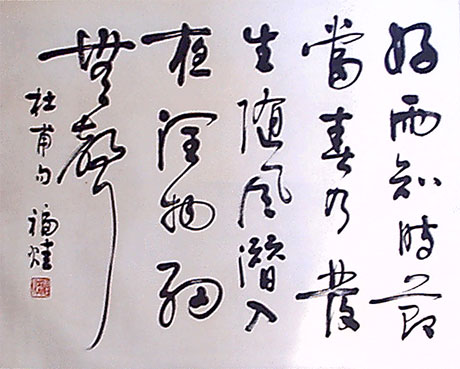 好雨知時節
當春乃發
生随風潛入
夜潤物細
無聲
杜甫句 福